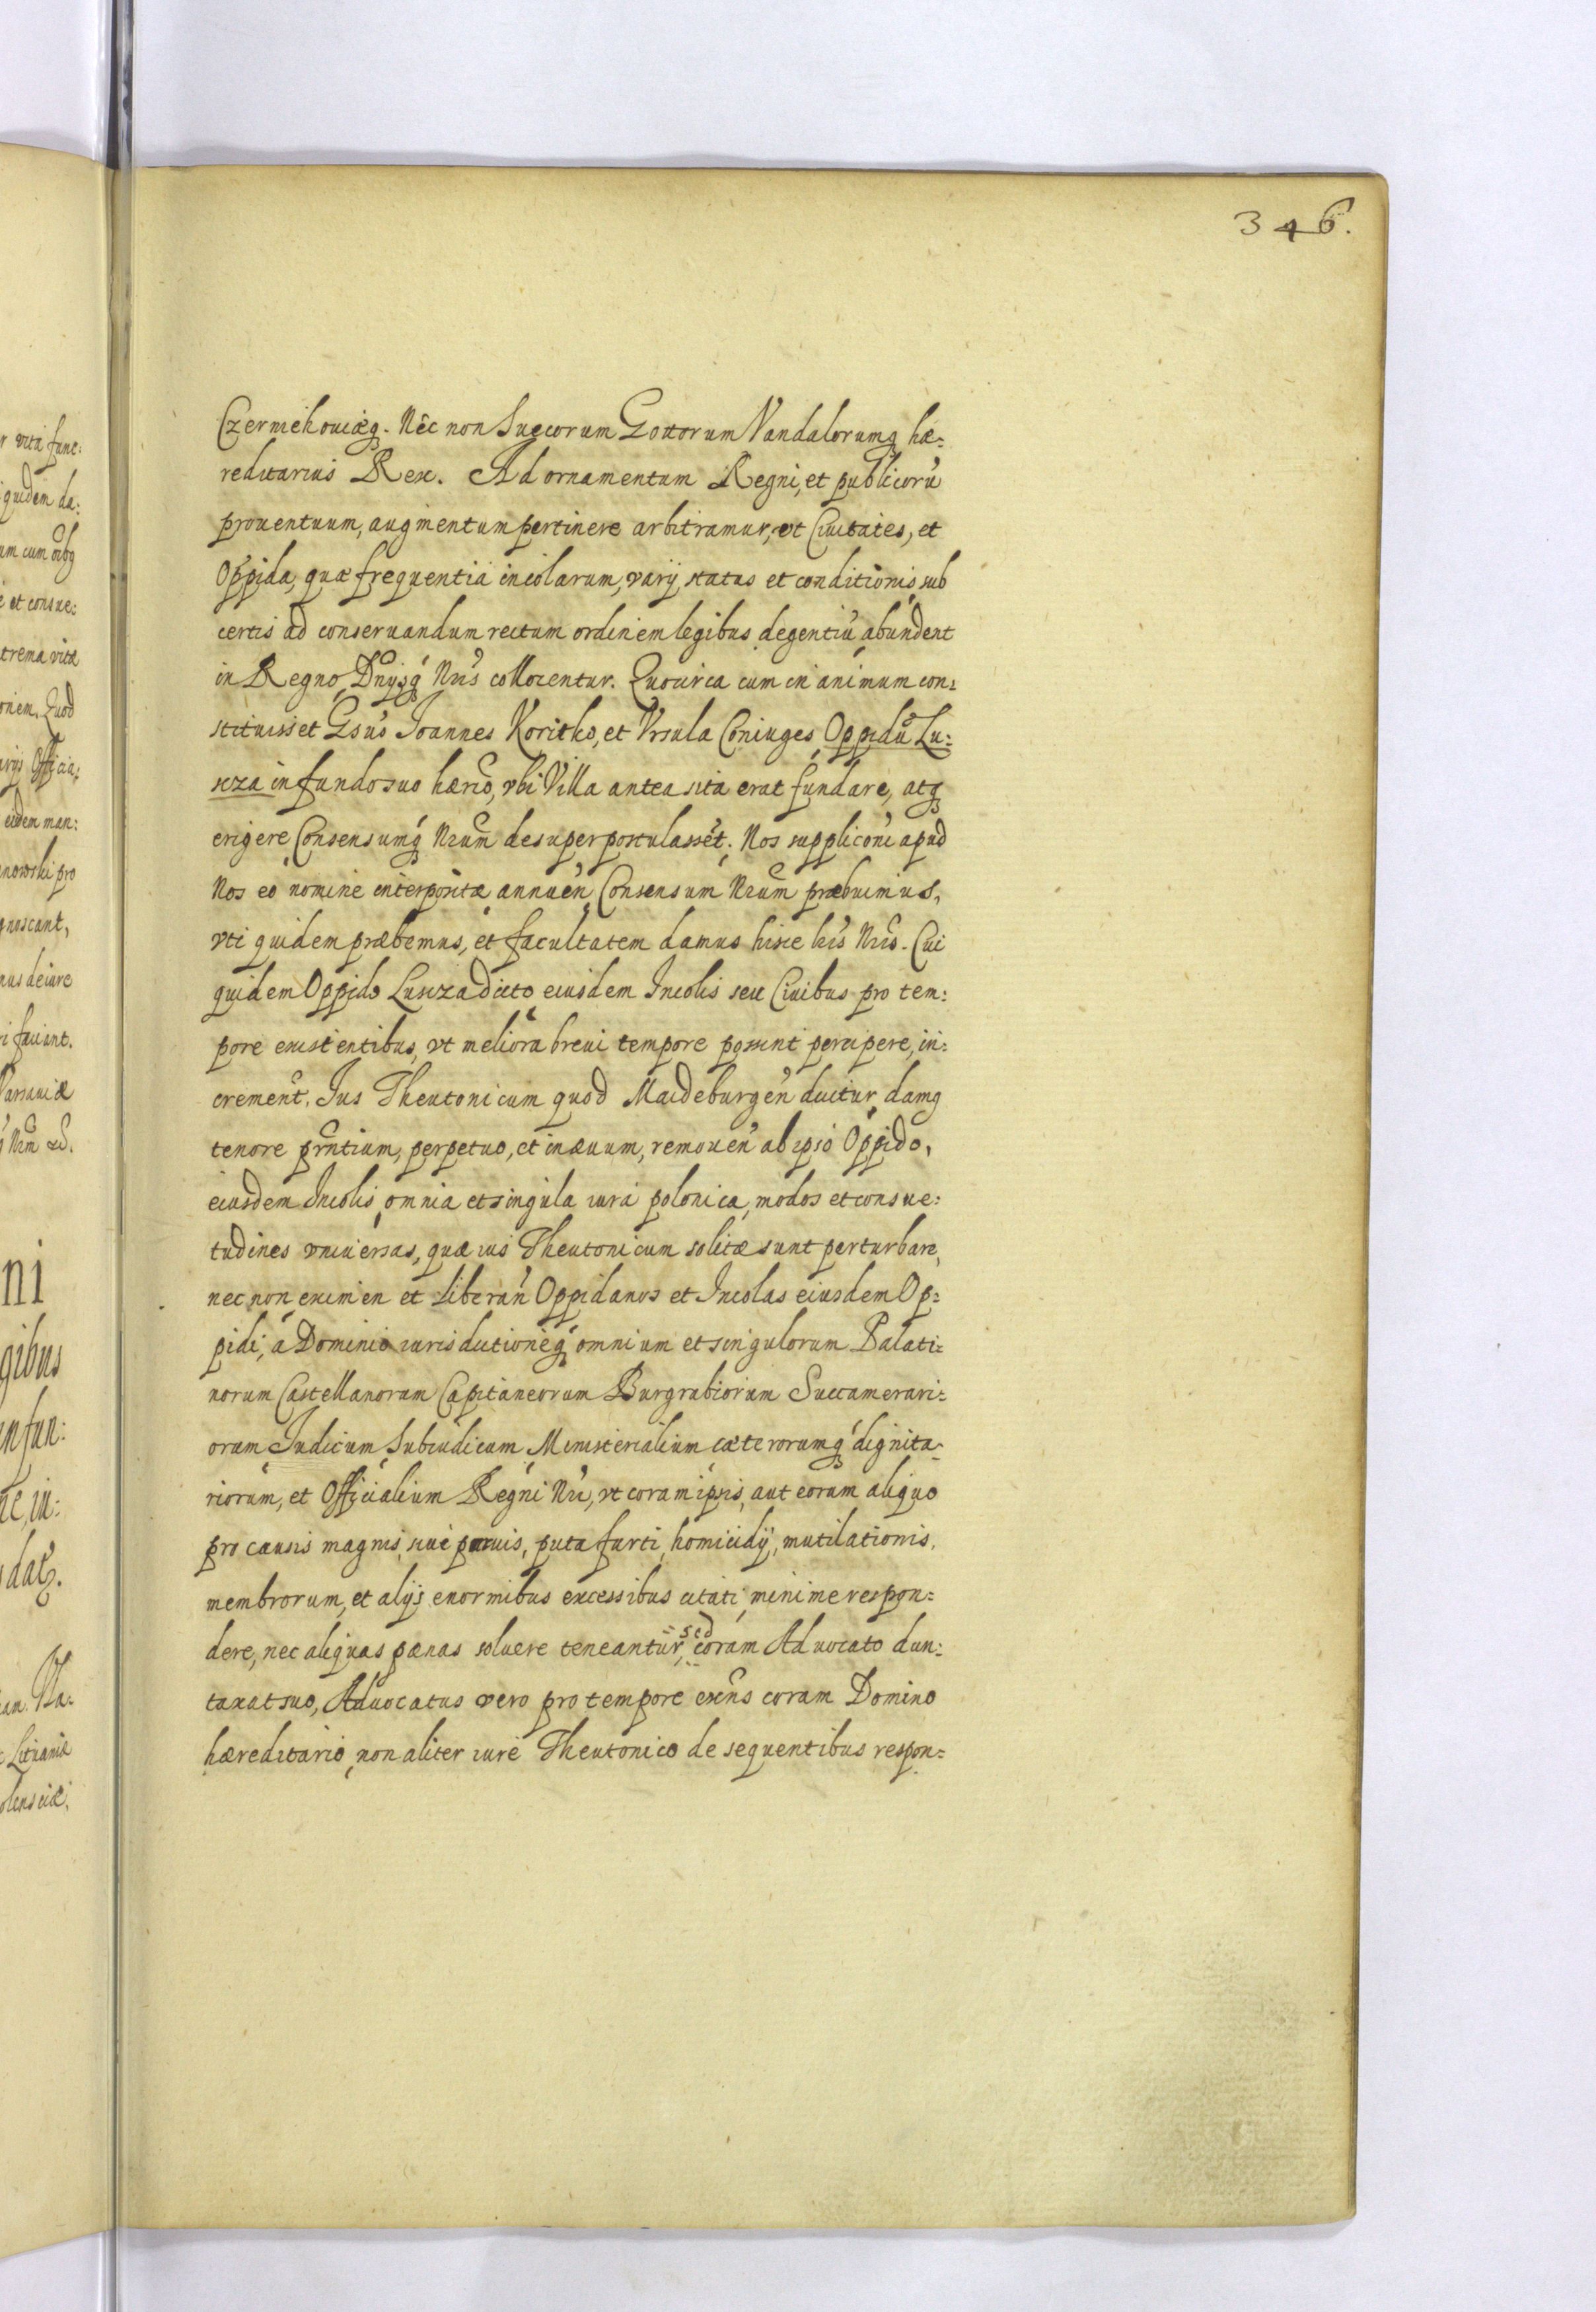 346.
Czerniehouiæq. Nec non Suecorum Gottorum Vandalorumq hæ:
reditarius Rex. Ad ornamentum Regni, et publicorũ
prouentuum, augmentum pertinere arbitramur, vt Ciuitates, et
Oppida, quæ frequentia incolarum, varij status et conditionis, sub
certis ad conseruandum rectum ordinem legibus degentiũ abundent
in Regno Dnijsq Nris collocentur. Quocirca cum in animum con:
stituisset Gsus Joannes Koritko, et Vrsula Coniuges Oppidũ Lu:
scza in fundo suo hærio, vbi Villa antea sita erat fundare, atq
erigere Consensumq Nrum desuper postulasset. Nos suppliconi apud
Nos eo nomine interpositæ annuen Consensum Nrum præbuimus,
vti quidem præbemus, et facultatem damus hisce lris Nris. Cui
quidem Oppido Luscza dicto eiusdem Incolis seu Ciuibus pro tem:
pore existentibus, vt meliora breui tempore possint percipere, in:
crement. Ius Theutonicum quod Maideburgen dicitur damq
tenore prntium, perpetuo, et in æuum, remouen ab ipso Oppido,
eiusdem Incolis omnia et singula iura polonica, modos et consue:
tudines vniuersas, quæ ius Theutonicum solitæ sunt perturbare,
nec non eximen et liberan Oppidanos et Incolas eiusdem Op:
pidi, a Dominio iurisdictioneq omnium et singulorum Palati:
norum Castellanorum Capitaneorum Burgrabiorum Succamerari:
orum Iudicum Subiudicum Ministerialium cæterorumq dignita:
riorum, et Officialium Regni Nri, vt coram ipsis, aut eorum aliquo
pro causis magnis, siue paruis, puta furti, homicidij, mutilationis,
membrorum, et alijs enormibus excessibus citati, minime respon:
dere, nec aliquas pænas soluere teneantur, sed coram Aduocato dun:
taxat suo, Aduocatus vero pro tempore exns coram Domino
hæreditario, non aliter iure Theutonico de sequentibus respon: